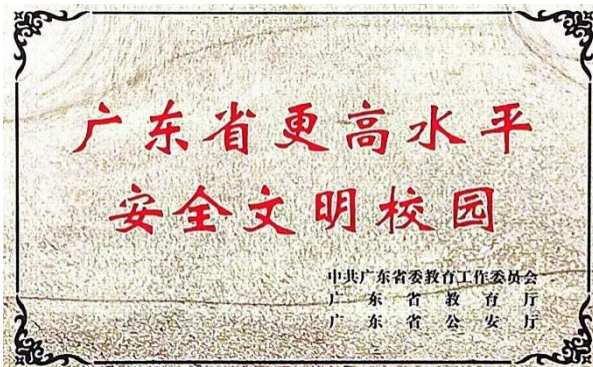 广东省更高水平
安全文明校园
中共广东省委教育工作委员会
广东省教育厅
广东省公安厅